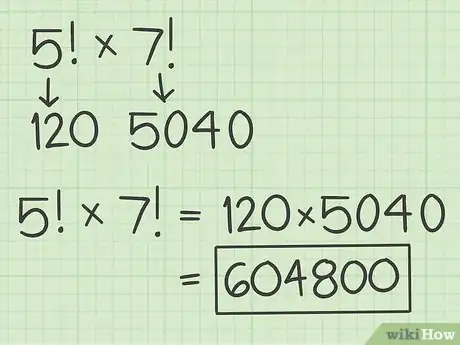 5! × 7!
↓ ↓
120 5040
5! × 7! = 120×5040
= 604800
wikiHow